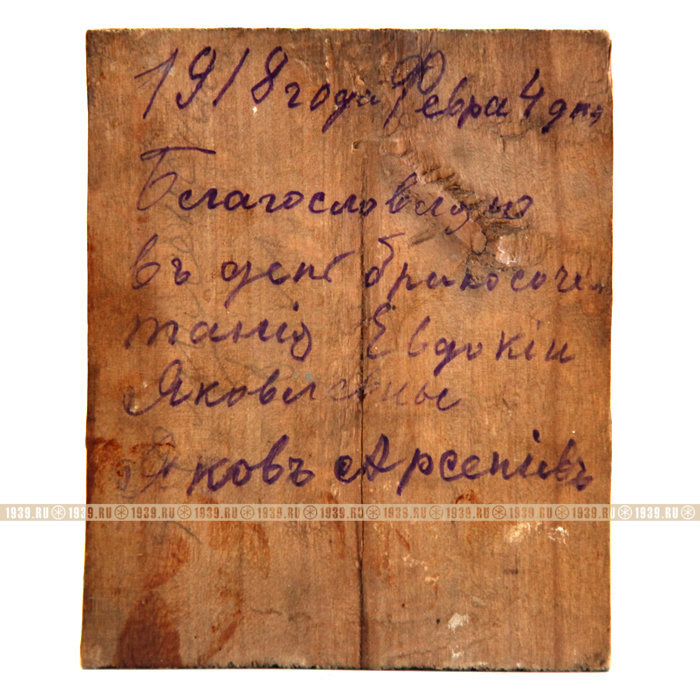 1918 года Февра 4 дня
Благословляю
въ день бракосоче
танія Евдокіи
Яковлевны
Яковъ Арсеніевъ
1939.RU 1939.RU 1939.RU 1939.RU 1939.RU 1939.RU 1939.RU 1939.RU 1939.RU 1939.RU